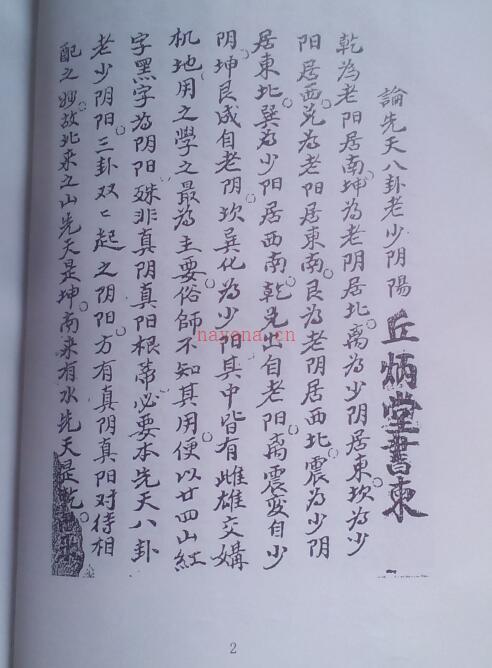 論先天八卦老少阴陽
丘炳堂書柬
乾為老阳居南坤為老阴居北离為少阴居東坎為少
阳居西兑為老阳居東南艮為老阴居西北震為少阴
居東北巽為少阳居西南乾兑出自老阳离震变自少
阴坤艮成自老阴坎巽化為少阳其中皆有雌雄交媾
机地用之學之最為主要俗師不知其用便以廿四山紅
字黑字為阴阳殊非真阴真阳根蒂必要本先天八卦
老少阴阳三卦双〻起之阴阳方有真阴真阳对待相
配之妙故北来之山先天是坤南来有水先天是乾
nayona.cn
2